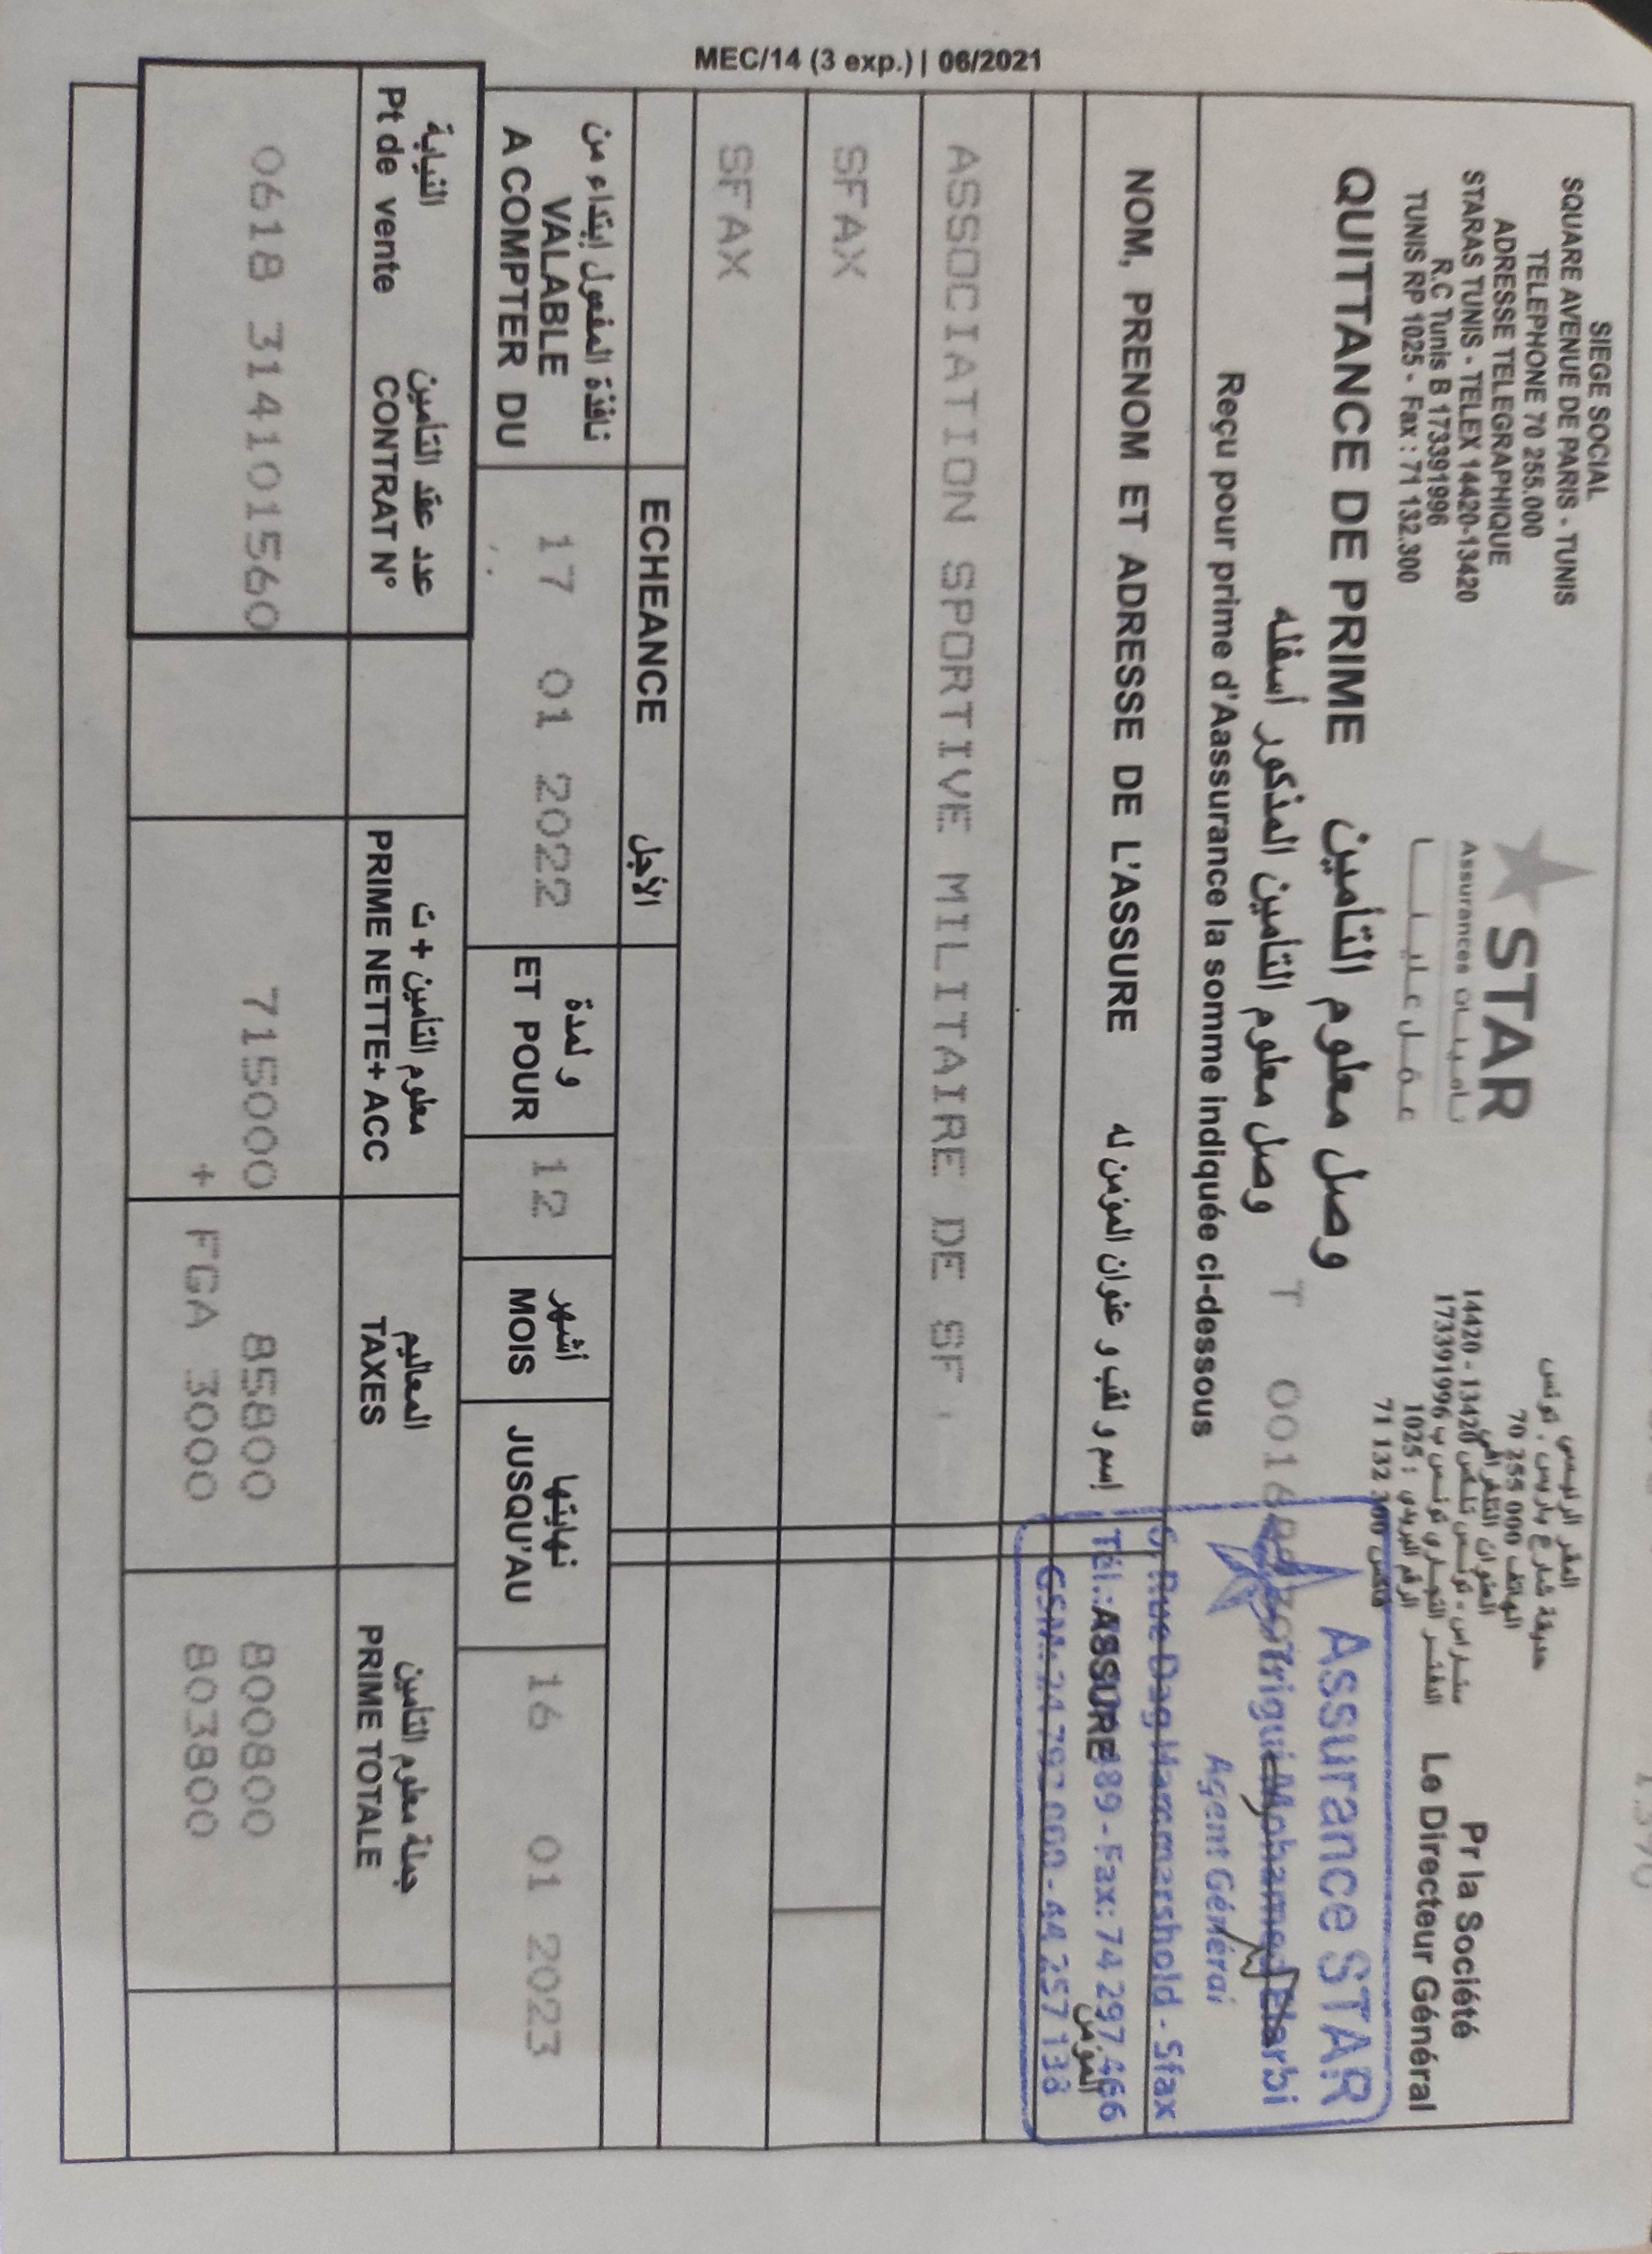 MEC/14 (3 exp.) | 06/2021
SIEGE SOCIAL
SQUARE AVENUE DE PARIS - TUNIS
TELEPHONE 70 255.000
ADRESSE TELEGRAPHIQUE
STARAS TUNIS - TELEX 14420-13420
R.C Tunis B 173391996
TUNIS RP 1025 - Fax : 71 132.300
STAR
Assurances تأمينات
المقر الرئيسي
حديقة شارع باريس . تونس
الهاتف 000 255 70
العنوان التلغرافي
ستراس - تونس تلكس 13420 - 14420
الدفتر التجاري تونس ب 173391996
الرقم البريدي : 1025
فاكس 300 132 71
Pr la Société
Le Directeur Général
QUITTANCE DE PRIME وصل معلوم التأمين
وصل معلوم التأمين المذكور أسفله
T
Reçu pour prime d'Aassurance la somme indiquée ci-dessous
Assurance STAR
Trigui Mohamed Elarbi
Agent Général
6, Rue Dag Hammarshold - Sfax
Fax: 74 297.466
NOM, PRENOM ET ADRESSE DE L'ASSURE إسم و لقب و عنوان المؤمن له
ASSURE المؤمن
ASSOCIATION SPORTIVE MILITAIRE DE SF
SFAX
SFAX
ECHEANCE الأجل
نافذة المفعول إبتداء من
VALABLE
A COMPTER DU
17 01 2022
و لمدة
ET POUR
12
أشهر
MOIS
نهايتها
JUSQU'AU
16 01 2023
النيابة
Pt de vente
عدد عقد التأمين
CONTRAT N°
معلوم التأمين + ت
PRIME NETTE+ ACC
المعاليم
TAXES
جملة معلوم التأمين
PRIME TOTALE
0618 314101560 715000 85800 800800
+ FGA 3000 803800